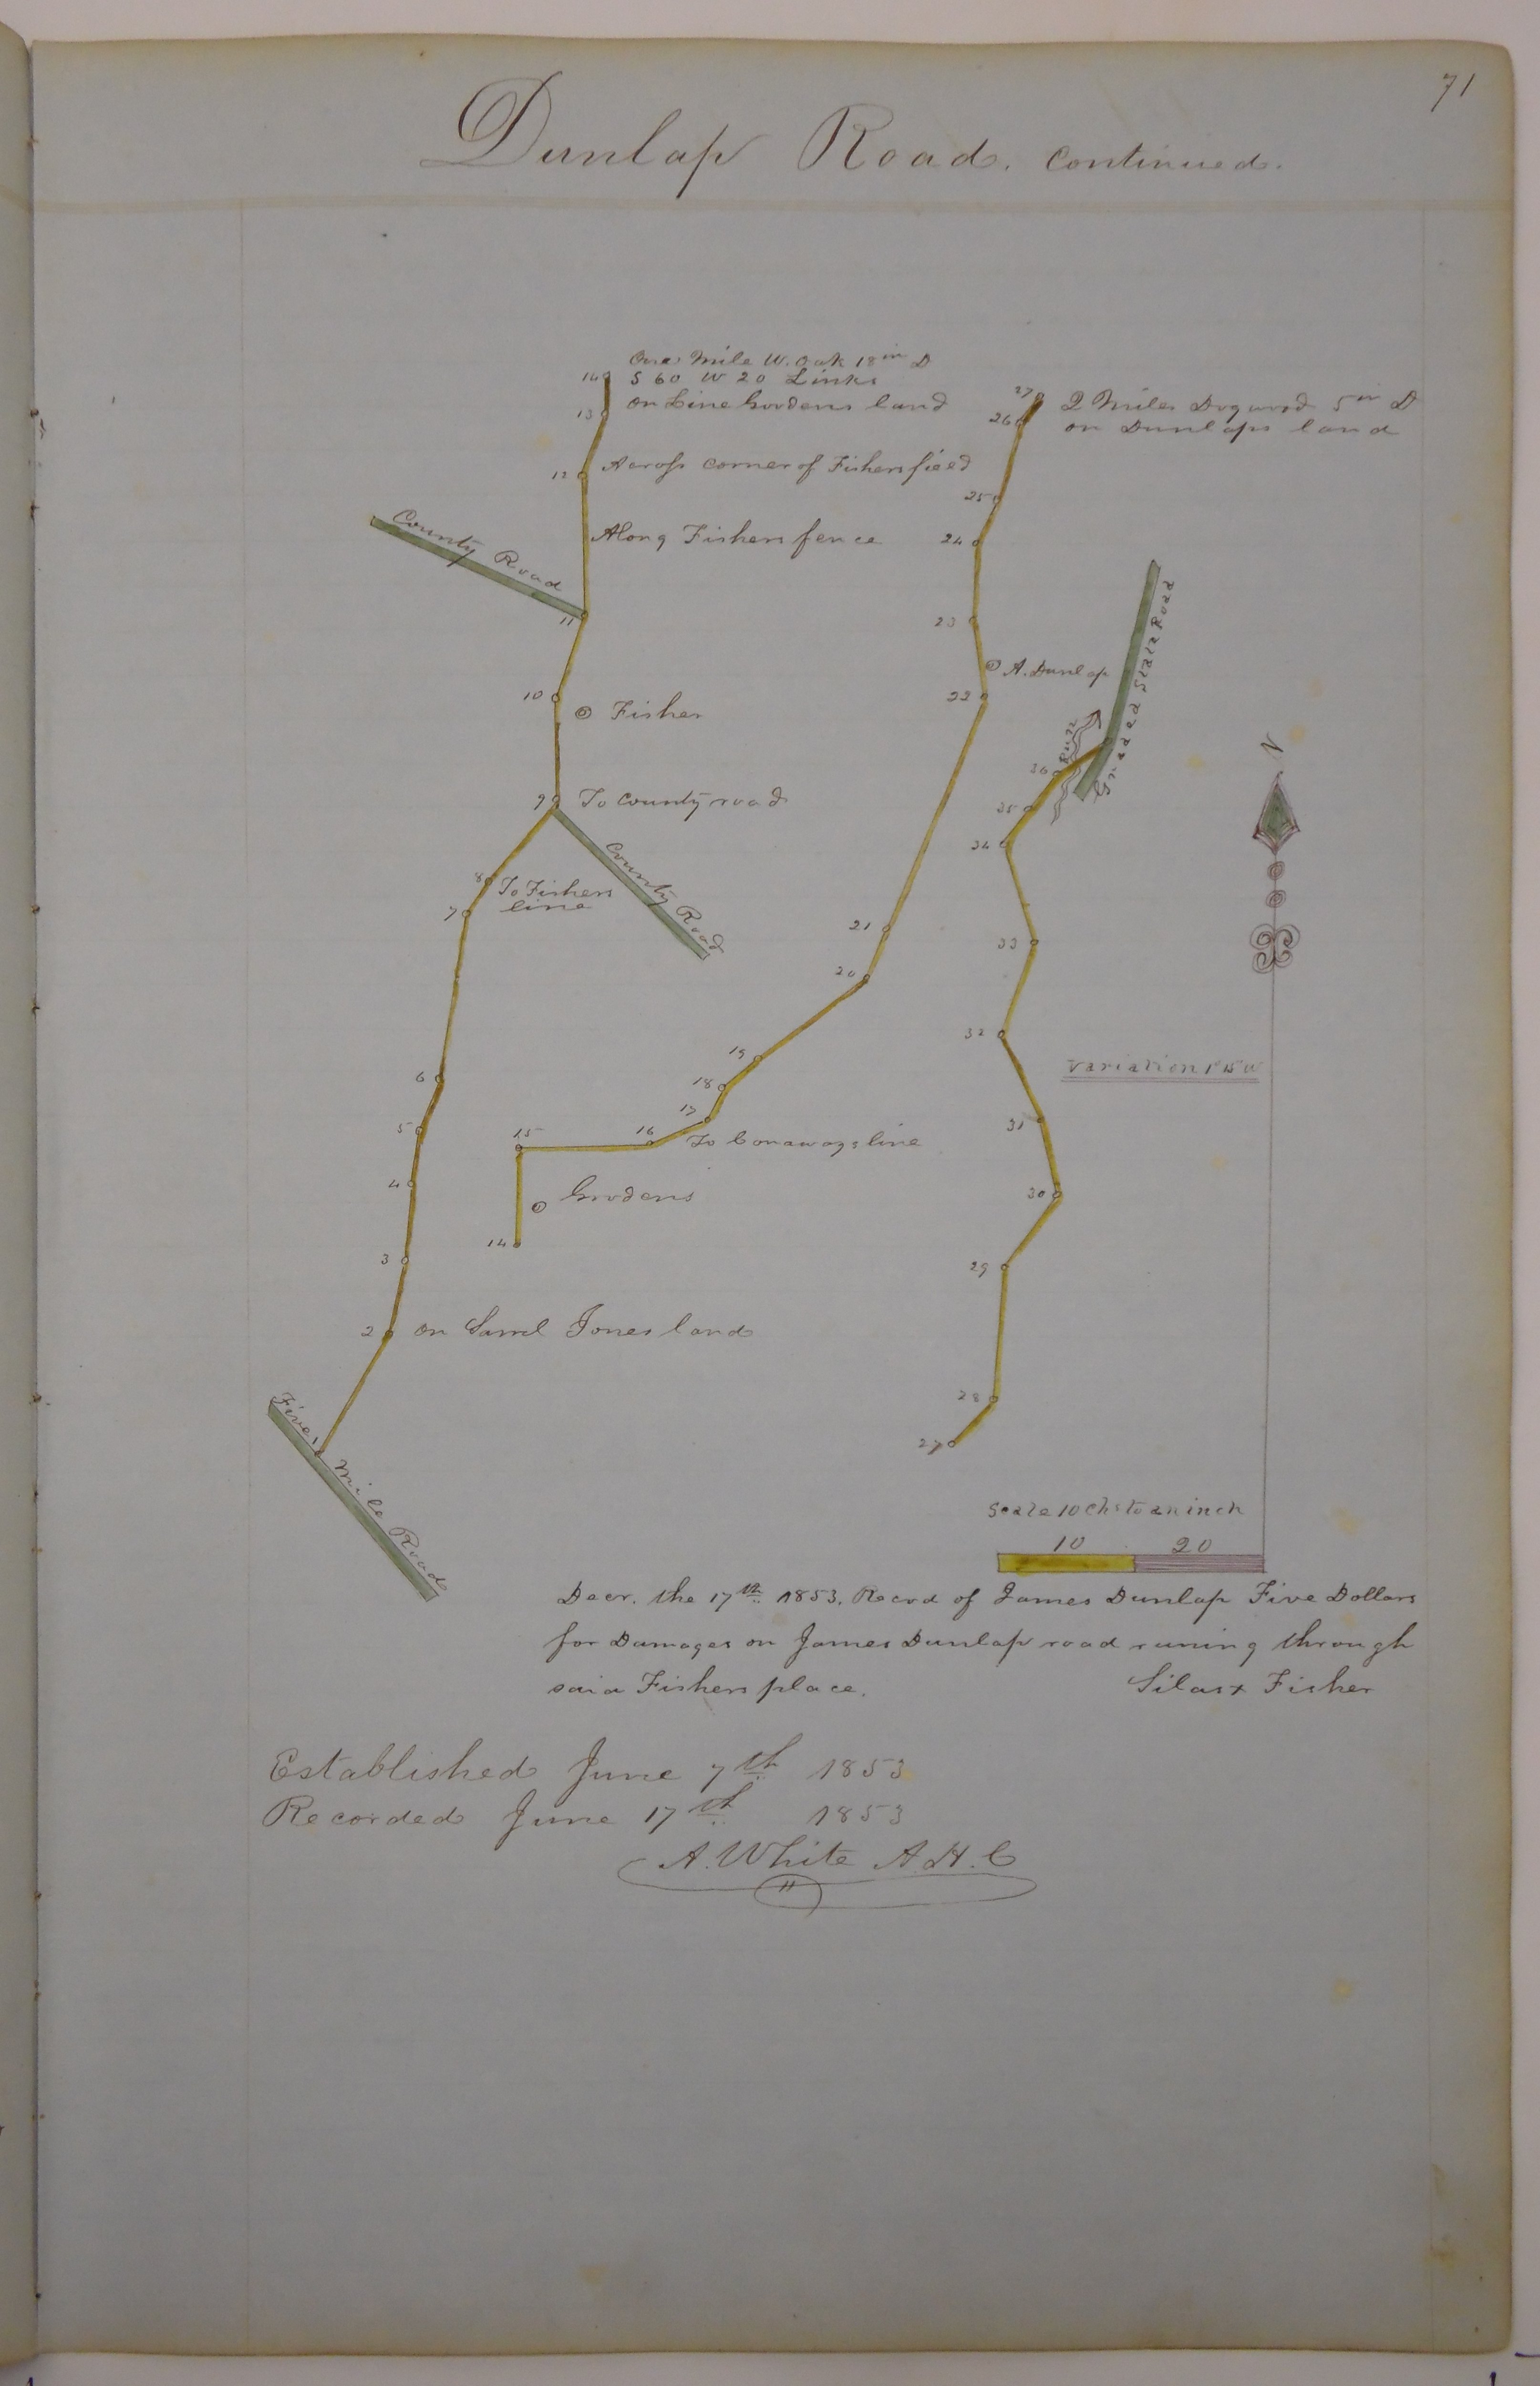 71
Dunlap Road. Continued.
One Mile W. Oak 18 in D
14 S 60 W 20 Links
13 on Line Goodens land
12 Across corner of Fishers field
Along Fishers fence
County Road
11
10 Fisher
9 To County road
County Road
8 To Fishers
line
7
6
5
4
3
2 on Saml Jones land
1
Five Mile Road
27 2 Miles Dogwood 5 in D
26 on Dunlaps land
25
24
23
A. Dunlap
22
21
20
19
18
17
16 To Conaways line
15
Goodens
14
Graded State Road
Run
36
35
34
33
32
31
30
29
28
27
N
Variation 1° 15' W
Scale 10 chs to an inch
10 20
Decr. the 17th 1853. Recvd of James Dunlap Five Dollars
for Damages on James Dunlap road runing through
said Fishers place. Silas x Fisher
Established June 7th 1853
Recorded June 17th 1853
A. White A.H.C